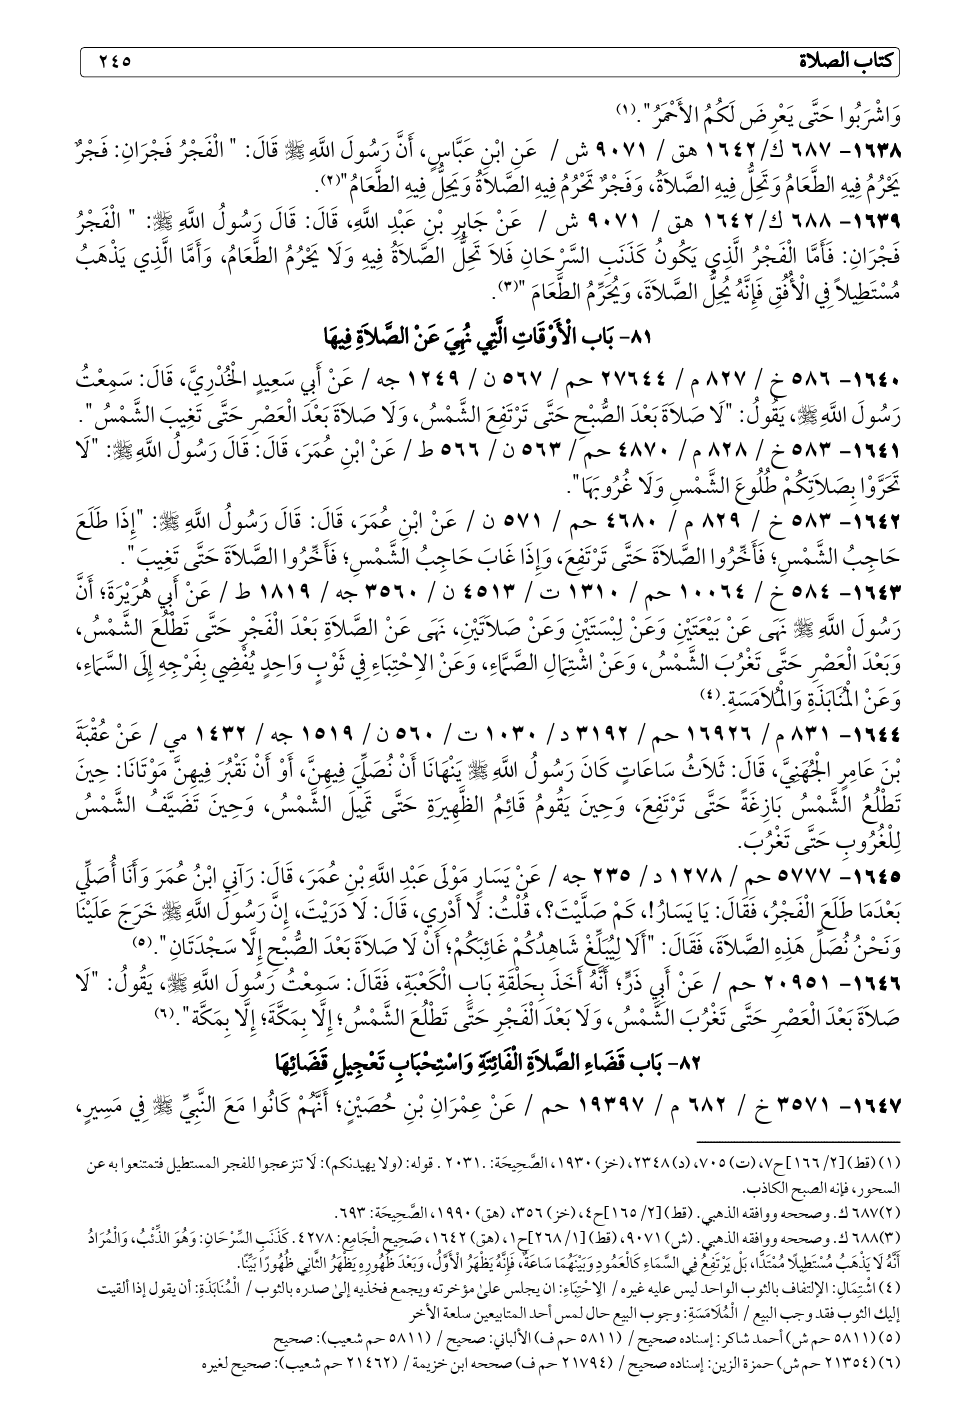 كتاب الصلاة ٢٤٥
وَاشْرَبُوا حَتَّى يَعْرِضَ لَكُمُ الأَحْمَرُ".(١)
١٦٣٨- ٦٨٧ ك/ ١٦٤٢ هق / ٩٠٧١ ش / عَنِ ابْنِ عَبَّاسٍ، أَنَّ رَسُولَ اللَّهِ ﷺ قَالَ: " الْفَجْرُ فَجْرَانِ: فَجْرٌ
يَحْرُمُ فِيهِ الطَّعَامُ وَتَحِلُّ فِيهِ الصَّلَاةُ، وَفَجْرٌ تَحْرُمُ فِيهِ الصَّلَاةُ وَيَحِلُّ فِيهِ الطَّعَامُ"(٢).
١٦٣٩- ٦٨٨ ك/ ١٦٤٢ هق / ٩٠٧١ ش / عَنْ جَابِرِ بْنِ عَبْدِ اللَّهِ، قَالَ: قَالَ رَسُولُ اللَّهِ ﷺ: " الْفَجْرُ
فَجْرَانِ: فَأَمَّا الْفَجْرُ الَّذِي يَكُونُ كَذَنَبِ السَّرْحَانِ فَلاَ تَحِلُّ الصَّلَاةُ فِيهِ وَلَا يَحْرُمُ الطَّعَامُ، وَأَمَّا الَّذِي يَذْهَبُ
مُسْتَطِيلاً فِي الْأُفُقِ فَإِنَّهُ يُحِلُّ الصَّلاَةَ، وَيُحَرِّمُ الطَّعَامَ "(٣).
٨١- بَاب الْأَوْقَاتِ الَّتِي نُهِيَ عَنْ الصَّلَاةِ فِيهَا
١٦٤٠- ٥٨٦ خ / ٨٢٧ م / ٢٧٦٤٤ حم / ٥٦٧ ن / ١٢٤٩ جه / عَنْ أَبِي سَعِيدٍ الْخُدْرِيَّ، قَالَ: سَمِعْتُ
رَسُولَ اللَّهِ ﷺ، يَقُولُ: "لَا صَلَاةَ بَعْدَ الصُّبْحِ حَتَّى تَرْتَفِعَ الشَّمْسُ، وَلَا صَلَاةَ بَعْدَ الْعَصْرِ حَتَّى تَغِيبَ الشَّمْسُ ".
١٦٤١- ٥٨٣ خ / ٨٢٨ م / ٤٨٧٠ حم / ٥٦٣ ن / ٥٦٦ ط / عَنْ ابْنِ عُمَرَ، قَالَ: قَالَ رَسُولُ اللَّهِ ﷺ: "لَا
تَحَرَّوْا بِصَلَاتِكُمْ طُلُوعَ الشَّمْسِ وَلَا غُرُوبَهَا".
١٦٤٢- ٥٨٣ خ / ٨٢٩ م / ٤٦٨٠ حم / ٥٧١ ن / عَنْ ابْنِ عُمَرَ، قَالَ: قَالَ رَسُولُ اللَّهِ ﷺ: "إِذَا طَلَعَ
حَاجِبُ الشَّمْسِ؛ فَأَخِّرُوا الصَّلَاةَ حَتَّى تَرْتَفِعَ، وَإِذَا غَابَ حَاجِبُ الشَّمْسِ؛ فَأَخِّرُوا الصَّلَاةَ حَتَّى تَغِيبَ".
١٦٤٣- ٥٨٤ خ / ١٠٠٦٤ حم / ١٣١٠ ت / ٤٥١٣ ن / ٣٥٦٠ جه / ١٨١٩ ط / عَنْ أَبِي هُرَيْرَةَ؛ أَنَّ
رَسُولَ اللَّهِ ﷺ نَهَى عَنْ بَيْعَتَيْنِ وَعَنْ لِبْسَتَيْنِ وَعَنْ صَلَاتَيْنِ، نَهَى عَنْ الصَّلَاةِ بَعْدَ الْفَجْرِ حَتَّى تَطْلُعَ الشَّمْسُ،
وَبَعْدَ الْعَصْرِ حَتَّى تَغْرُبَ الشَّمْسُ، وَعَنْ اشْتِمَالِ الصَّمَّاءِ، وَعَنْ الِاحْتِبَاءِ فِي ثَوْبٍ وَاحِدٍ يُفْضِي بِفَرْجِهِ إِلَى السَّمَاءِ،
وَعَنْ الْمُنَابَذَةِ وَالْمُلَامَسَةِ.(٤)
١٦٤٤- ٨٣١ م / ١٦٩٢٦ حم / ٣١٩٢ د / ١٠٣٠ ت / ٥٦٠ ن / ١٥١٩ جه / ١٤٣٢ مي / عَنْ عُقْبَةَ
بْنَ عَامِرٍ الْجُهَنِيَّ، قَالَ: ثَلَاثُ سَاعَاتٍ كَانَ رَسُولُ اللَّهِ ﷺ يَنْهَانَا أَنْ نُصَلِّيَ فِيهِنَّ، أَوْ أَنْ نَقْبُرَ فِيهِنَّ مَوْتَانَا: حِينَ
تَطْلُعُ الشَّمْسُ بَازِغَةً حَتَّى تَرْتَفِعَ، وَحِينَ يَقُومُ قَائِمُ الظَّهِيرَةِ حَتَّى تَمِيلَ الشَّمْسُ، وَحِينَ تَضَيَّفُ الشَّمْسُ
لِلْغُرُوبِ حَتَّى تَغْرُبَ.
١٦٤٥- ٥٧٧٧ حم / ١٢٧٨ د / ٢٣٥ جه / عَنْ يَسَارٍ مَوْلَى عَبْدِ اللَّهِ بْنِ عُمَرَ، قَالَ: رَآنِي ابْنُ عُمَرَ وَأَنَا أُصَلِّي
بَعْدَمَا طَلَعَ الْفَجْرُ، فَقَالَ: يَا يَسَارُ!، كَمْ صَلَّيْتَ؟، قُلْتُ: لَا أَدْرِي، قَالَ: لَا دَرَيْتَ، إِنَّ رَسُولَ اللَّهِ ﷺ خَرَجَ عَلَيْنَا
وَنَحْنُ نُصَلِّ هَذِهِ الصَّلَاةَ، فَقَالَ: "أَلَا لِيُبَلِّغْ شَاهِدُكُمْ غَائِبَكُمْ؛ أَنْ لَا صَلَاةَ بَعْدَ الصُّبْحِ إِلَّا سَجْدَتَانِ".(٥)
١٦٤٦- ٢٠٩٥١ حم / عَنْ أَبِي ذَرٍّ؛ أَنَّهُ أَخَذَ بِحَلْقَةِ بَابِ الْكَعْبَةِ، فَقَالَ: سَمِعْتُ رَسُولَ اللَّهِ ﷺ، يَقُولُ: "لَا
صَلَاةَ بَعْدَ الْعَصْرِ حَتَّى تَغْرُبَ الشَّمْسُ، وَلَا بَعْدَ الْفَجْرِ حَتَّى تَطْلُعَ الشَّمْسُ؛ إِلَّا بِمَكَّةَ؛ إِلَّا بِمَكَّةَ".(٦)
٨٢- بَاب قَضَاءِ الصَّلَاةِ الْفَائِتَةِ وَاسْتِحْبَابِ تَعْجِيلِ قَضَائِهَا
١٦٤٧- ٣٥٧١ خ / ٦٨٢ م / ١٩٣٩٧ حم / عَنْ عِمْرَانَ بْنِ حُصَيْنٍ؛ أَنَّهُمْ كَانُوا مَعَ النَّبِيِّ ﷺ فِي مَسِيرٍ،
(١) (قط) [٢/ ١٦٦] ح٧، (ت) ٧٠٥، (د) ٢٣٤٨، (خز) ١٩٣٠، الصَّحِيحَة: .٢٠٣١ . قوله: (ولا يهيدنكم): لَا تنزعجوا للفجر المستطيل فتمتنعوا به عن
السحور، فإنه الصبح الكاذب.
(٢) ٦٨٧ ك. وصححه ووافقه الذهبي. (قط) [٢/ ١٦٥] ح٤، (خز) ٣٥٦، (هق) ١٩٩٠، الصَّحِيحَة: ٦٩٣.
(٣) ٦٨٨ ك. وصححه ووافقه الذهبي. (ش) ٩٠٧١، (قط) [١/ ٢٦٨] ح١، (هق) ١٦٤٢، صَحِيح الْجَامِع: ٤٢٧٨ . كَذَنَبِ السِّرْحَانِ: وَهُوَ الذِّئْبُ، وَالْمُرَادُ
أَنَّهُ لَا يَذْهَبُ مُسْتَطِيلًا مُمْتَدًّا، بَلْ يَرْتَفِعُ فِي السَّمَاءِ كَالْعَمُودِ وَبَيْنَهُمَا سَاعَةٌ، فَإِنَّهُ يَظْهَرُ الْأَوَّلُ، وَبَعْدَ ظُهُورِهِ يَظْهَرُ الثَّانِي ظُهُورًا بَيِّنًا.
(٤) اشْتِمَالِ: الإلتفاف بالثوب الواحد ليس عليه غيره / الِاحْتِبَاءِ: ان يجلس على مؤخرته ويجمع فخذيه إلى صدره بالثوب / الْمُنَابَذَةِ: أن يقول إذا ألقيت
إليك الثوب فقد وجب البيع / الْمُلَامَسَةِ: وجوب البيع حال لمس أحد المتابيعين سلعة الأخر
(٥) (٥٨١١ حم ش) أحمد شاكر: إسناده صحيح / (٥٨١١ حم ف) الألباني: صحيح / (٥٨١١ حم شعيب): صحيح
(٦) (٢١٣٥٤ حم ش) حمزة الزين: إسناده صحيح / (٢١٧٩٤ حم ف) صححه ابن خزيمة / (٢١٤٦٢ حم شعيب): صحيح لغيره